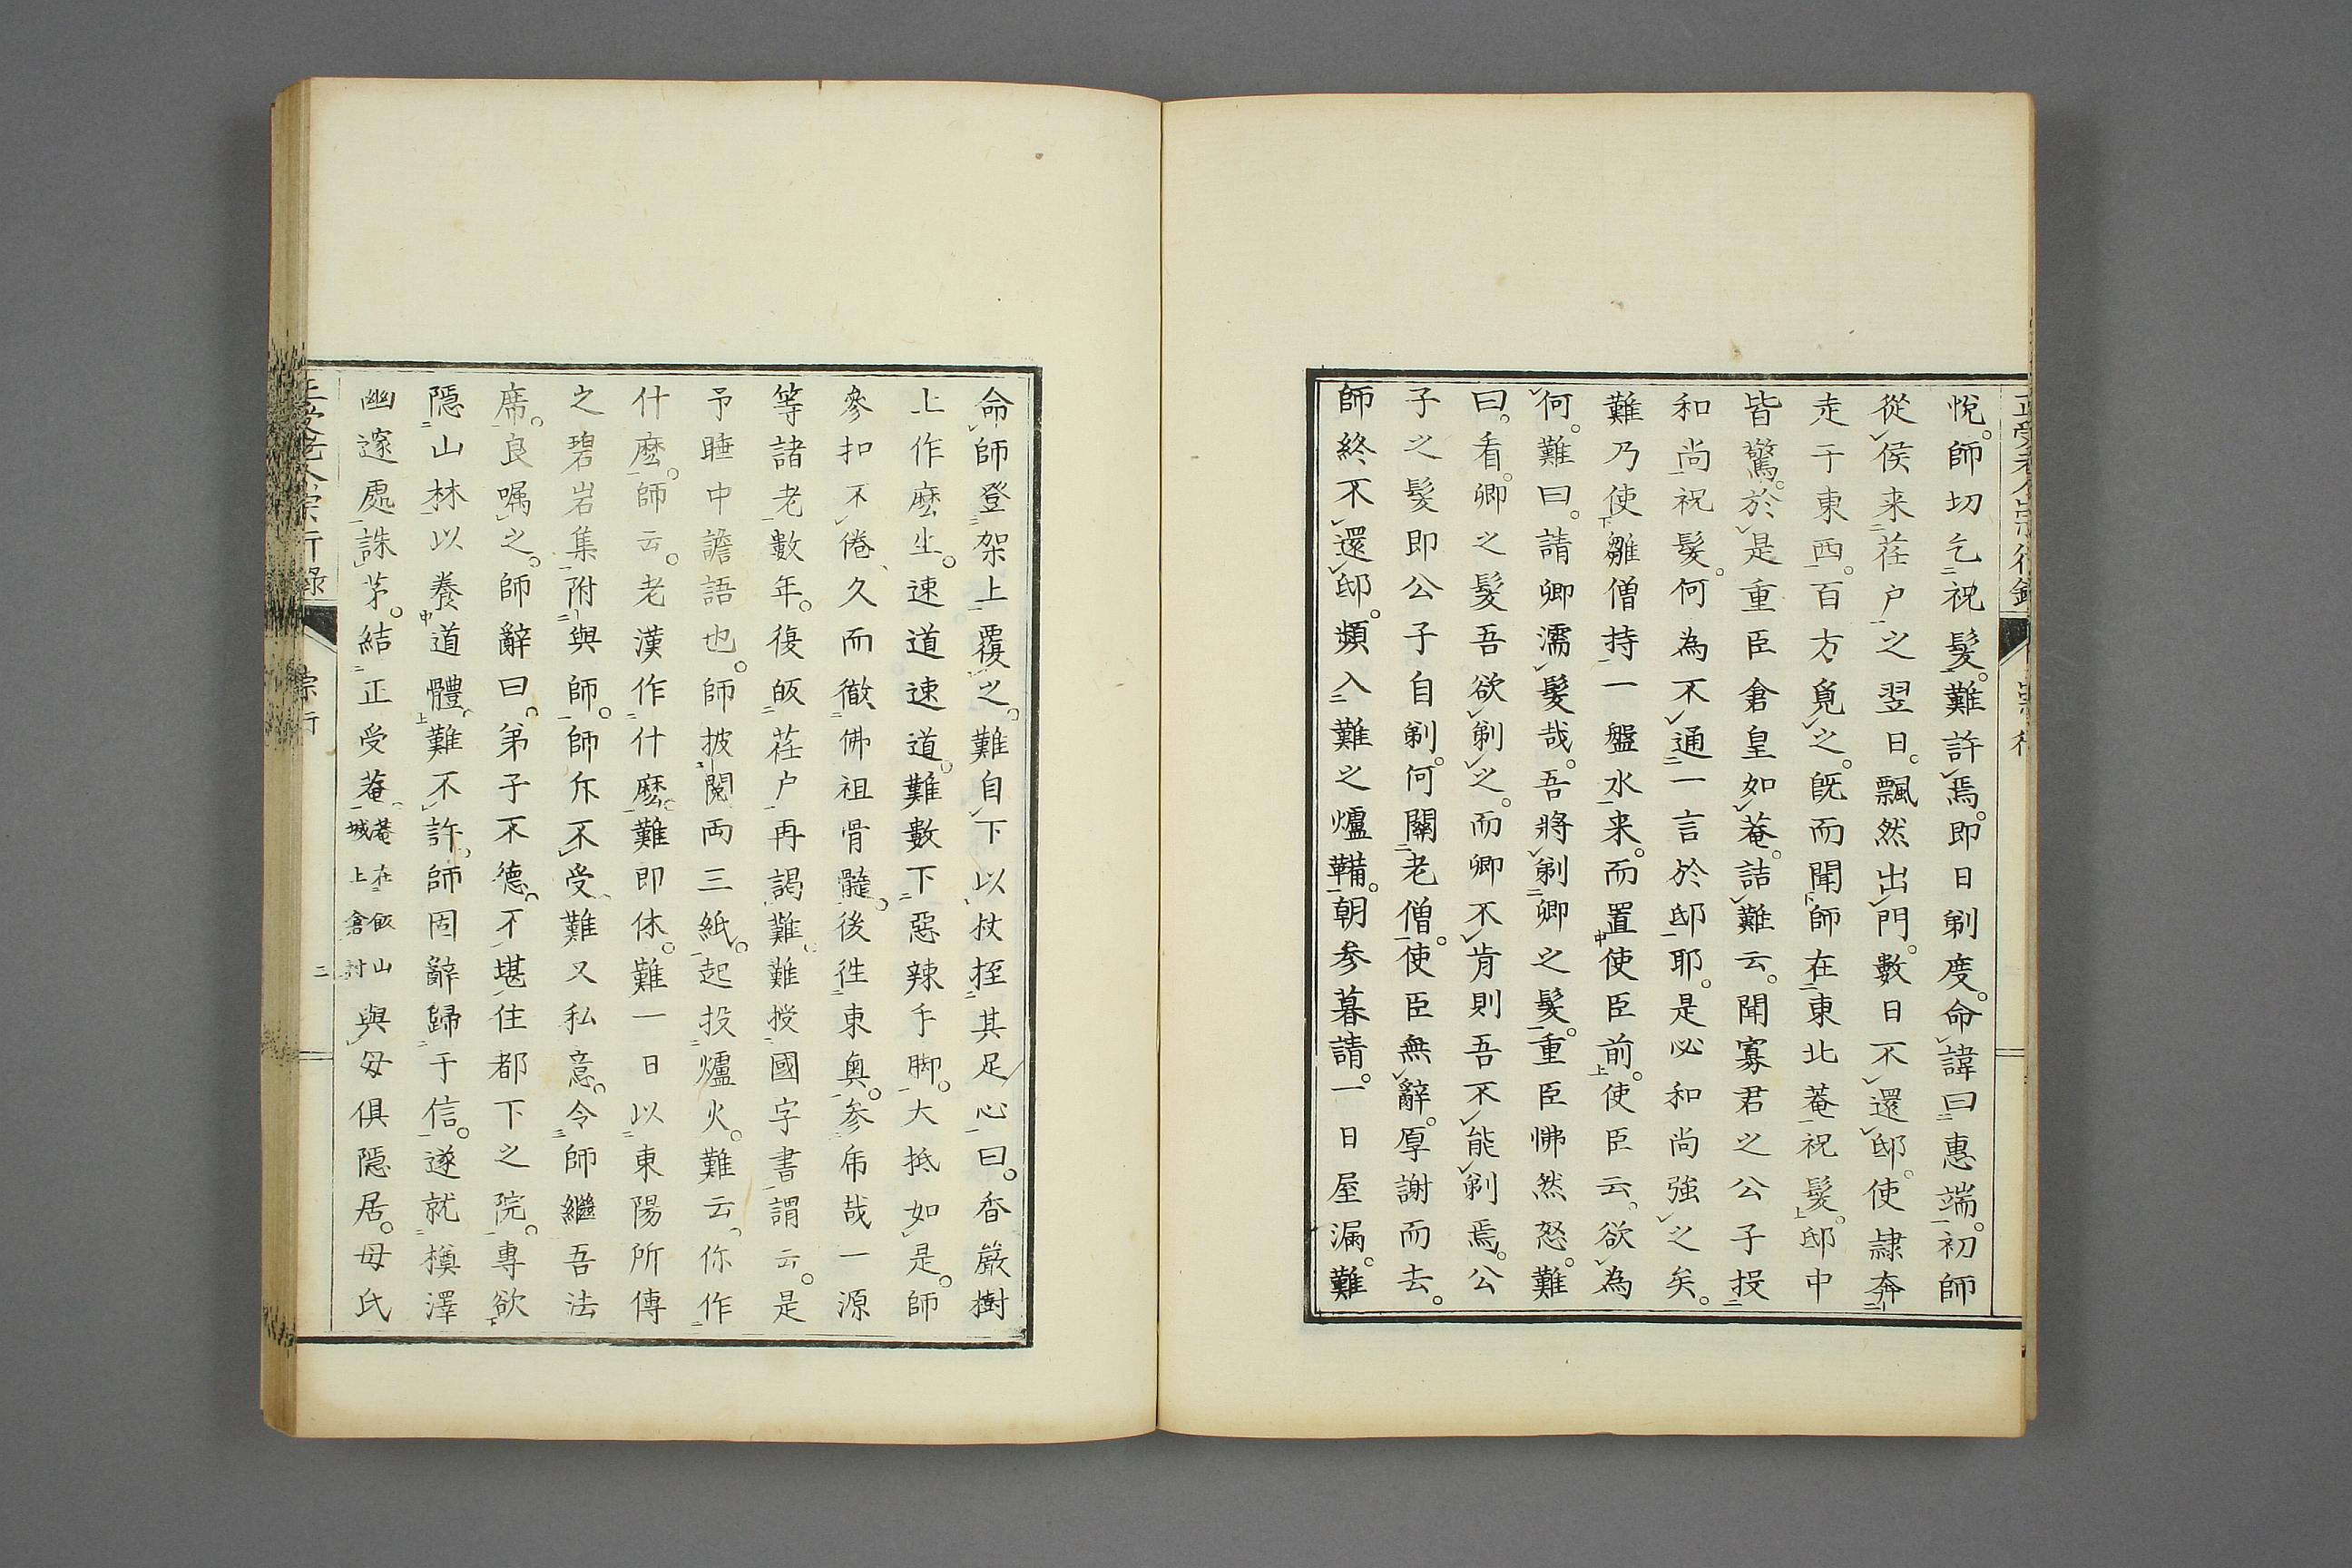 悅。師切乞祝髮。難許焉。即日剃度。命諱曰惠端。初師
從侯来荏户之翌日。飄然出門。數日不還邸。使隷奔
走于東西。百方覓之。既而聞師在東北菴祝髮。邸中
皆驚。於是重臣倉皇如菴。詰難云。聞寡君之公子投
和尚祝髮。何為不通一言於邸耶。是必和尚強之矣。
難乃使雛僧持一盤水来。而置使臣前。使臣云、欲為
何。難曰。請卿濡髮哉。吾將剃卿之髮。重臣怫然怒。難
曰。看。卿之髮吾欲剃之。而卿不肯則吾不能剃焉。公
子之髮即公子自剃。何關老僧。使臣無辭。厚謝而去。
師終不還邸。頻入難之爐鞴。朝参暮請。一日屋漏。難
命師登架上覆之。難自下以杖挃其足心曰。香嚴樹
上作麼生。速道速道。難數下惡辣手脚。大抵如是。師
參扣不倦、久而徹佛祖骨髓。後徃東奥。参帋哉一源
等諸老數年。復皈荏户再謁難。難授國字書謂云。是
予睡中譫語也。師披閲両三紙。起投爐火。難云、你作
什麼。師云。老漢作什麼。難即休。難一日以東陽所傳
之碧岩集附與師。師斥不受。難又私意。令師繼吾法
席。良嘱之。師辭曰。弟子不德。不堪住都下之院。專欲
隱山林以養道體。難不許。師固辭歸于信。遂就樌澤
幽邃處誅茅。結正受菴。菴在飯山城上倉村與母俱隱居。母氏
正受老人崇行録 崇行 三